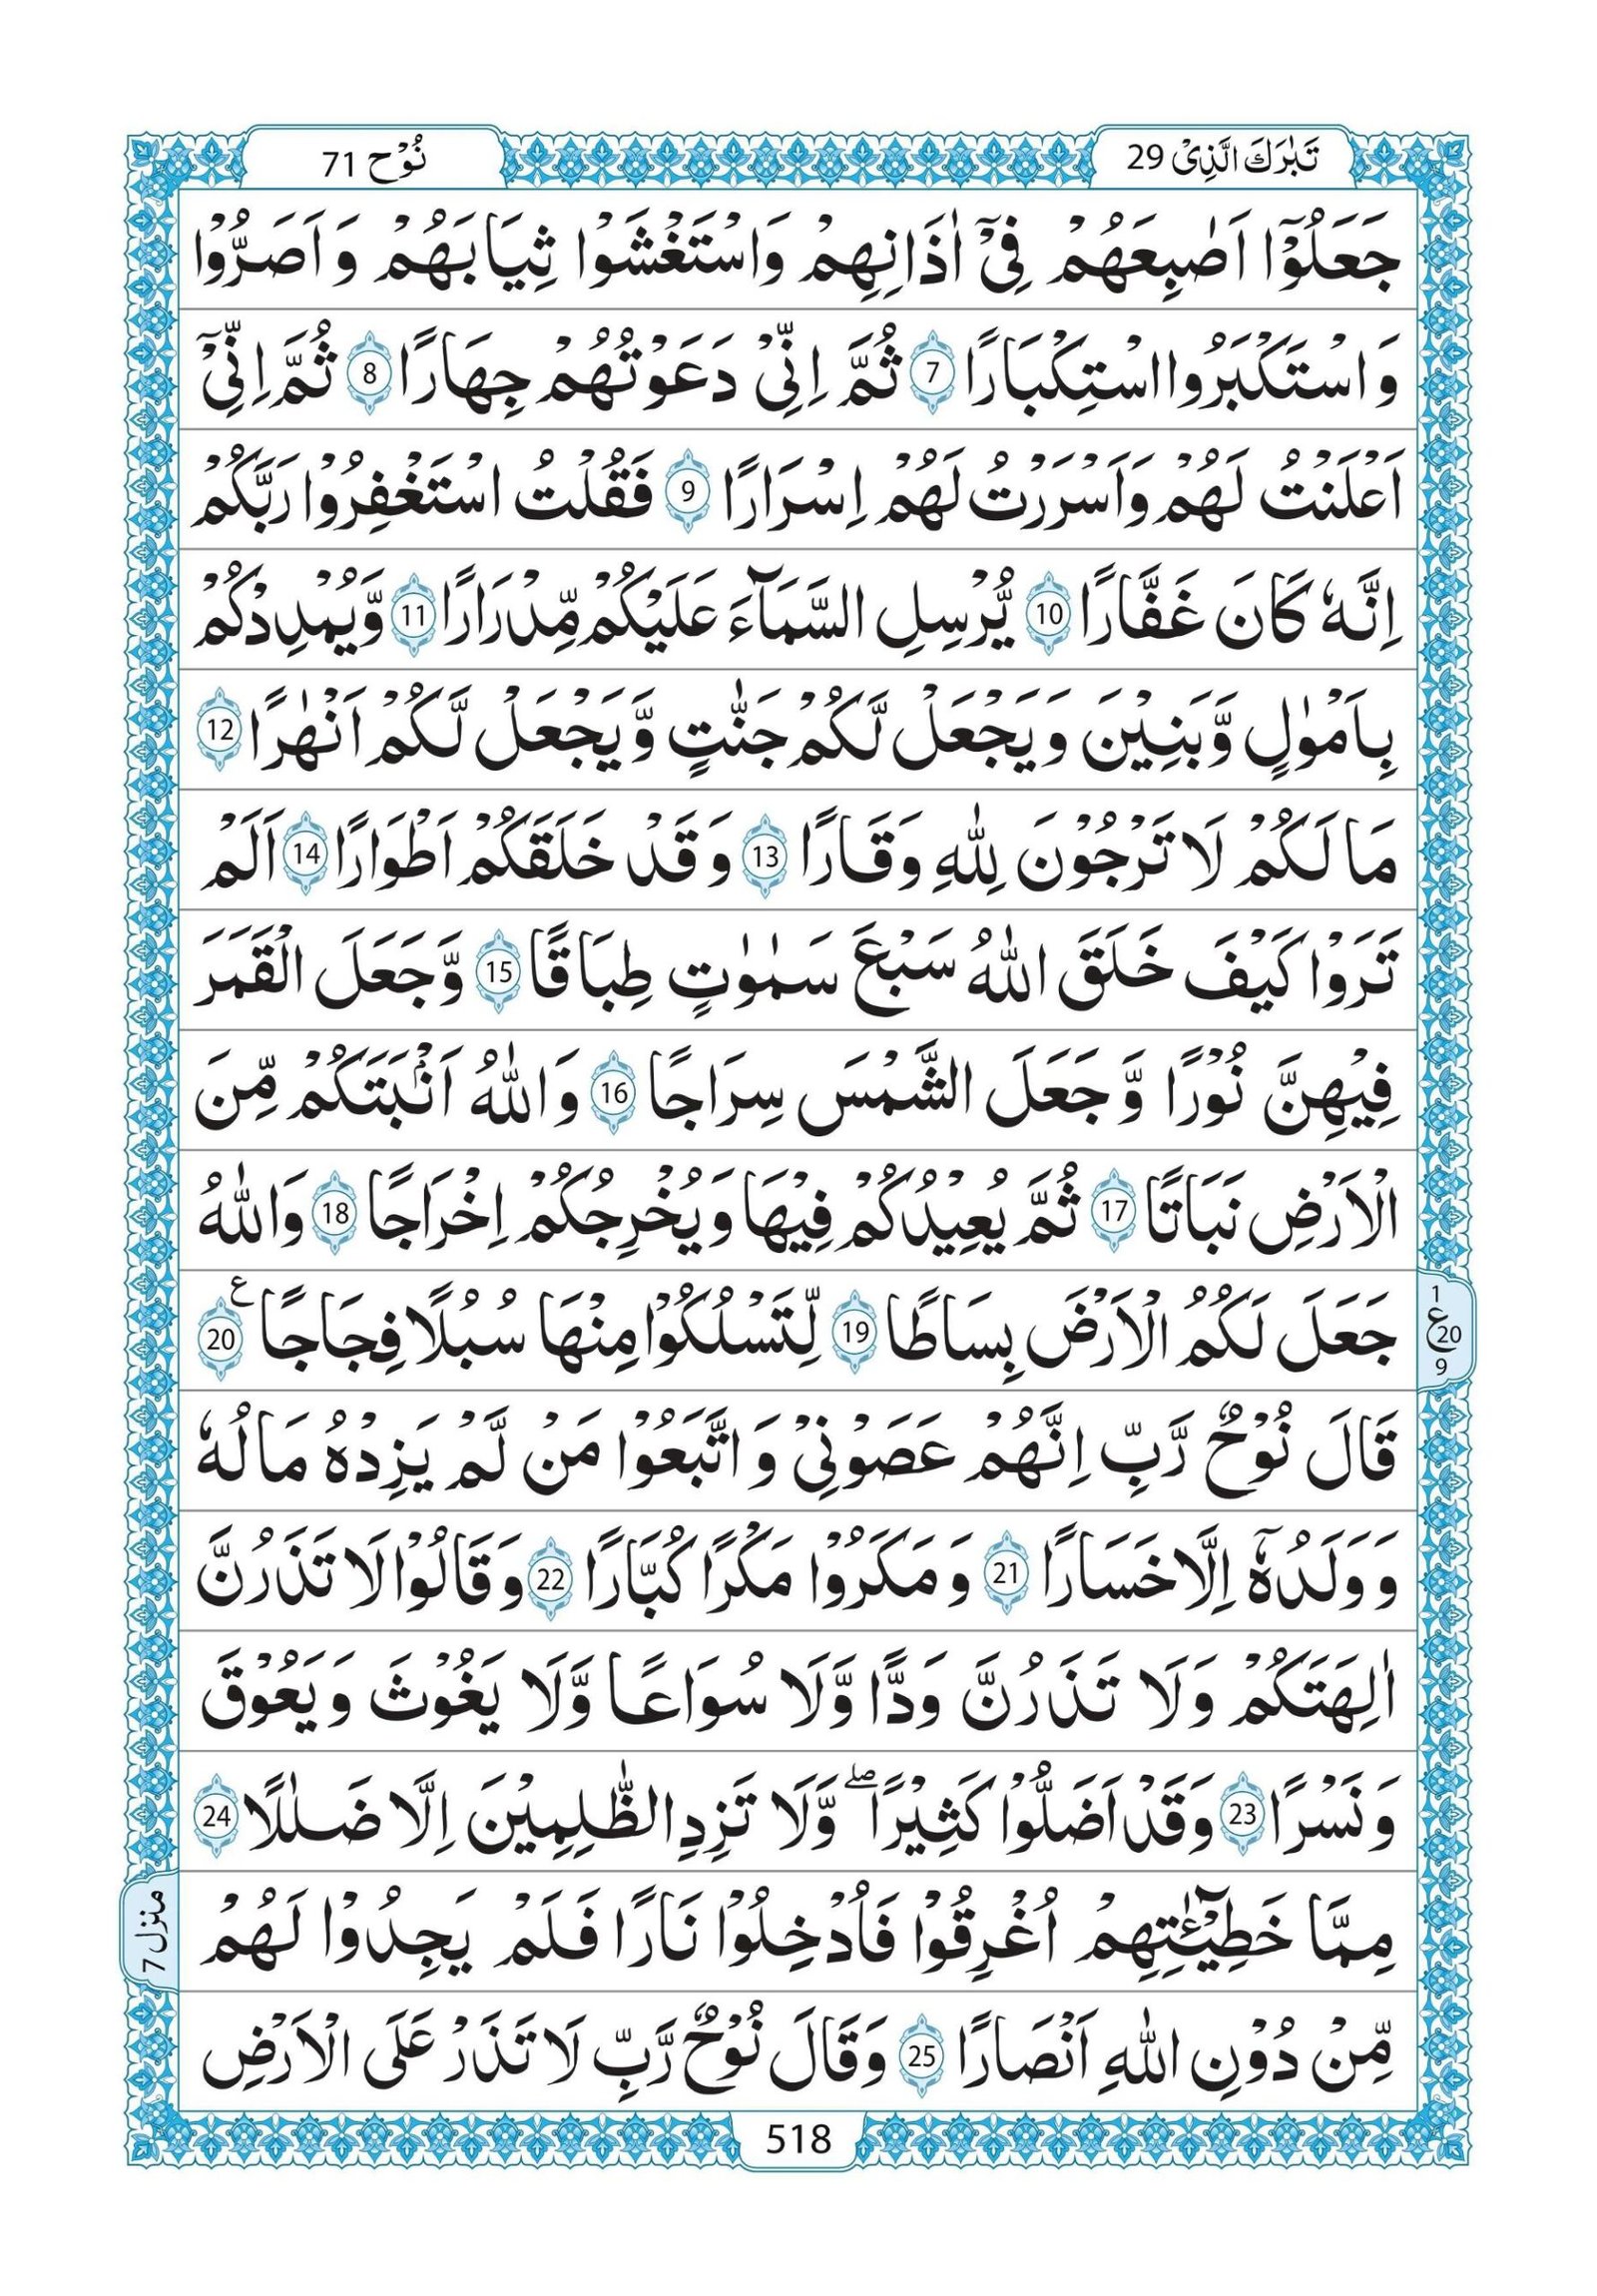 تَبٰرَكَ الَّذِیْ 29
نُوْح 71
جَعَلُوْۤا اَصٰبِعَهُمْ فِیْۤ اٰذَانِهِمْ وَاسْتَغْشَوْا ثِیَابَهُمْ وَ اَصَرُّوْا
وَ اسْتَكْبَرُوا اسْتِكْبَارًا 7 ثُمَّ اِنِّیْ دَعَوْتُهُمْ جِهَارًا 8 ثُمَّ اِنِّیْۤ
اَعْلَنْتُ لَهُمْ وَاَسْرَرْتُ لَهُمْ اِسْرَارًا 9 فَقُلْتُ اسْتَغْفِرُوْا رَبَّكُمْ
اِنَّهٗ كَانَ غَفَّارًا 10 یُّرْسِلِ السَّمَآءَ عَلَیْكُمْ مِّدْرَارًا 11 وَّیُمْدِدْكُمْ
بِاَمْوٰلٍ وَّبَنِیْنَ وَ یَجْعَلْ لَّكُمْ جَنّٰتٍ وَّ یَجْعَلْ لَّكُمْ اَنْهٰرًا 12
مَا لَكُمْ لَا تَرْجُوْنَ لِلّٰهِ وَقَارًا 13 وَ قَدْ خَلَقَكُمْ اَطْوَارًا 14 اَلَمْ
تَرَوْا كَیْفَ خَلَقَ اللّٰهُ سَبْعَ سَمٰوٰتٍ طِبَاقًا 15 وَّجَعَلَ الْقَمَرَ
فِیْهِنَّ نُوْرًا وَّ جَعَلَ الشَّمْسَ سِرَاجًا 16 وَاللّٰهُ اَنْۢبَتَكُمْ مِّنَ
الْاَرْضِ نَبَاتًا 17 ثُمَّ یُعِیْدُكُمْ فِیْهَا وَ یُخْرِجُكُمْ اِخْرَاجًا 18 وَاللّٰهُ
جَعَلَ لَكُمُ الْاَرْضَ بِسَاطًا 19 لِّتَسْلُكُوْا مِنْهَا سُبُلًا فِجَاجًا ع 20
1 ع 20 9
قَالَ نُوْحٌ رَّبِّ اِنَّهُمْ عَصَوْنِیْ وَ اتَّبَعُوْا مَنْ لَّمْ یَزِدْهُ مَالُهٗ
وَ وَلَدُهٗۤ اِلَّا خَسَارًا 21 وَ مَكَرُوْا مَكْرًا كُبَّارًا 22 وَ قَالُوْا لَا تَذَرُنَّ
اٰلِهَتَكُمْ وَلَا تَذَرُنَّ وَدًّا وَّلَا سُوَاعًا وَّلَا یَغُوْثَ وَ یَعُوْقَ
وَ نَسْرًا 23 وَقَدْ اَضَلُّوْا كَثِیْرًا ۖ وَّلَا تَزِدِ الظّٰلِمِیْنَ اِلَّا ضَلٰلًا 24
مِمَّا خَطِیْٓـٰٔتِهِمْ اُغْرِقُوْا فَاُدْخِلُوْا نَارًا فَلَمْ یَجِدُوْا لَهُمْ
منزل 7
مِّنْ دُوْنِ اللّٰهِ اَنْصَارًا 25 وَقَالَ نُوْحٌ رَّبِّ لَا تَذَرْ عَلَی الْاَرْضِ
518